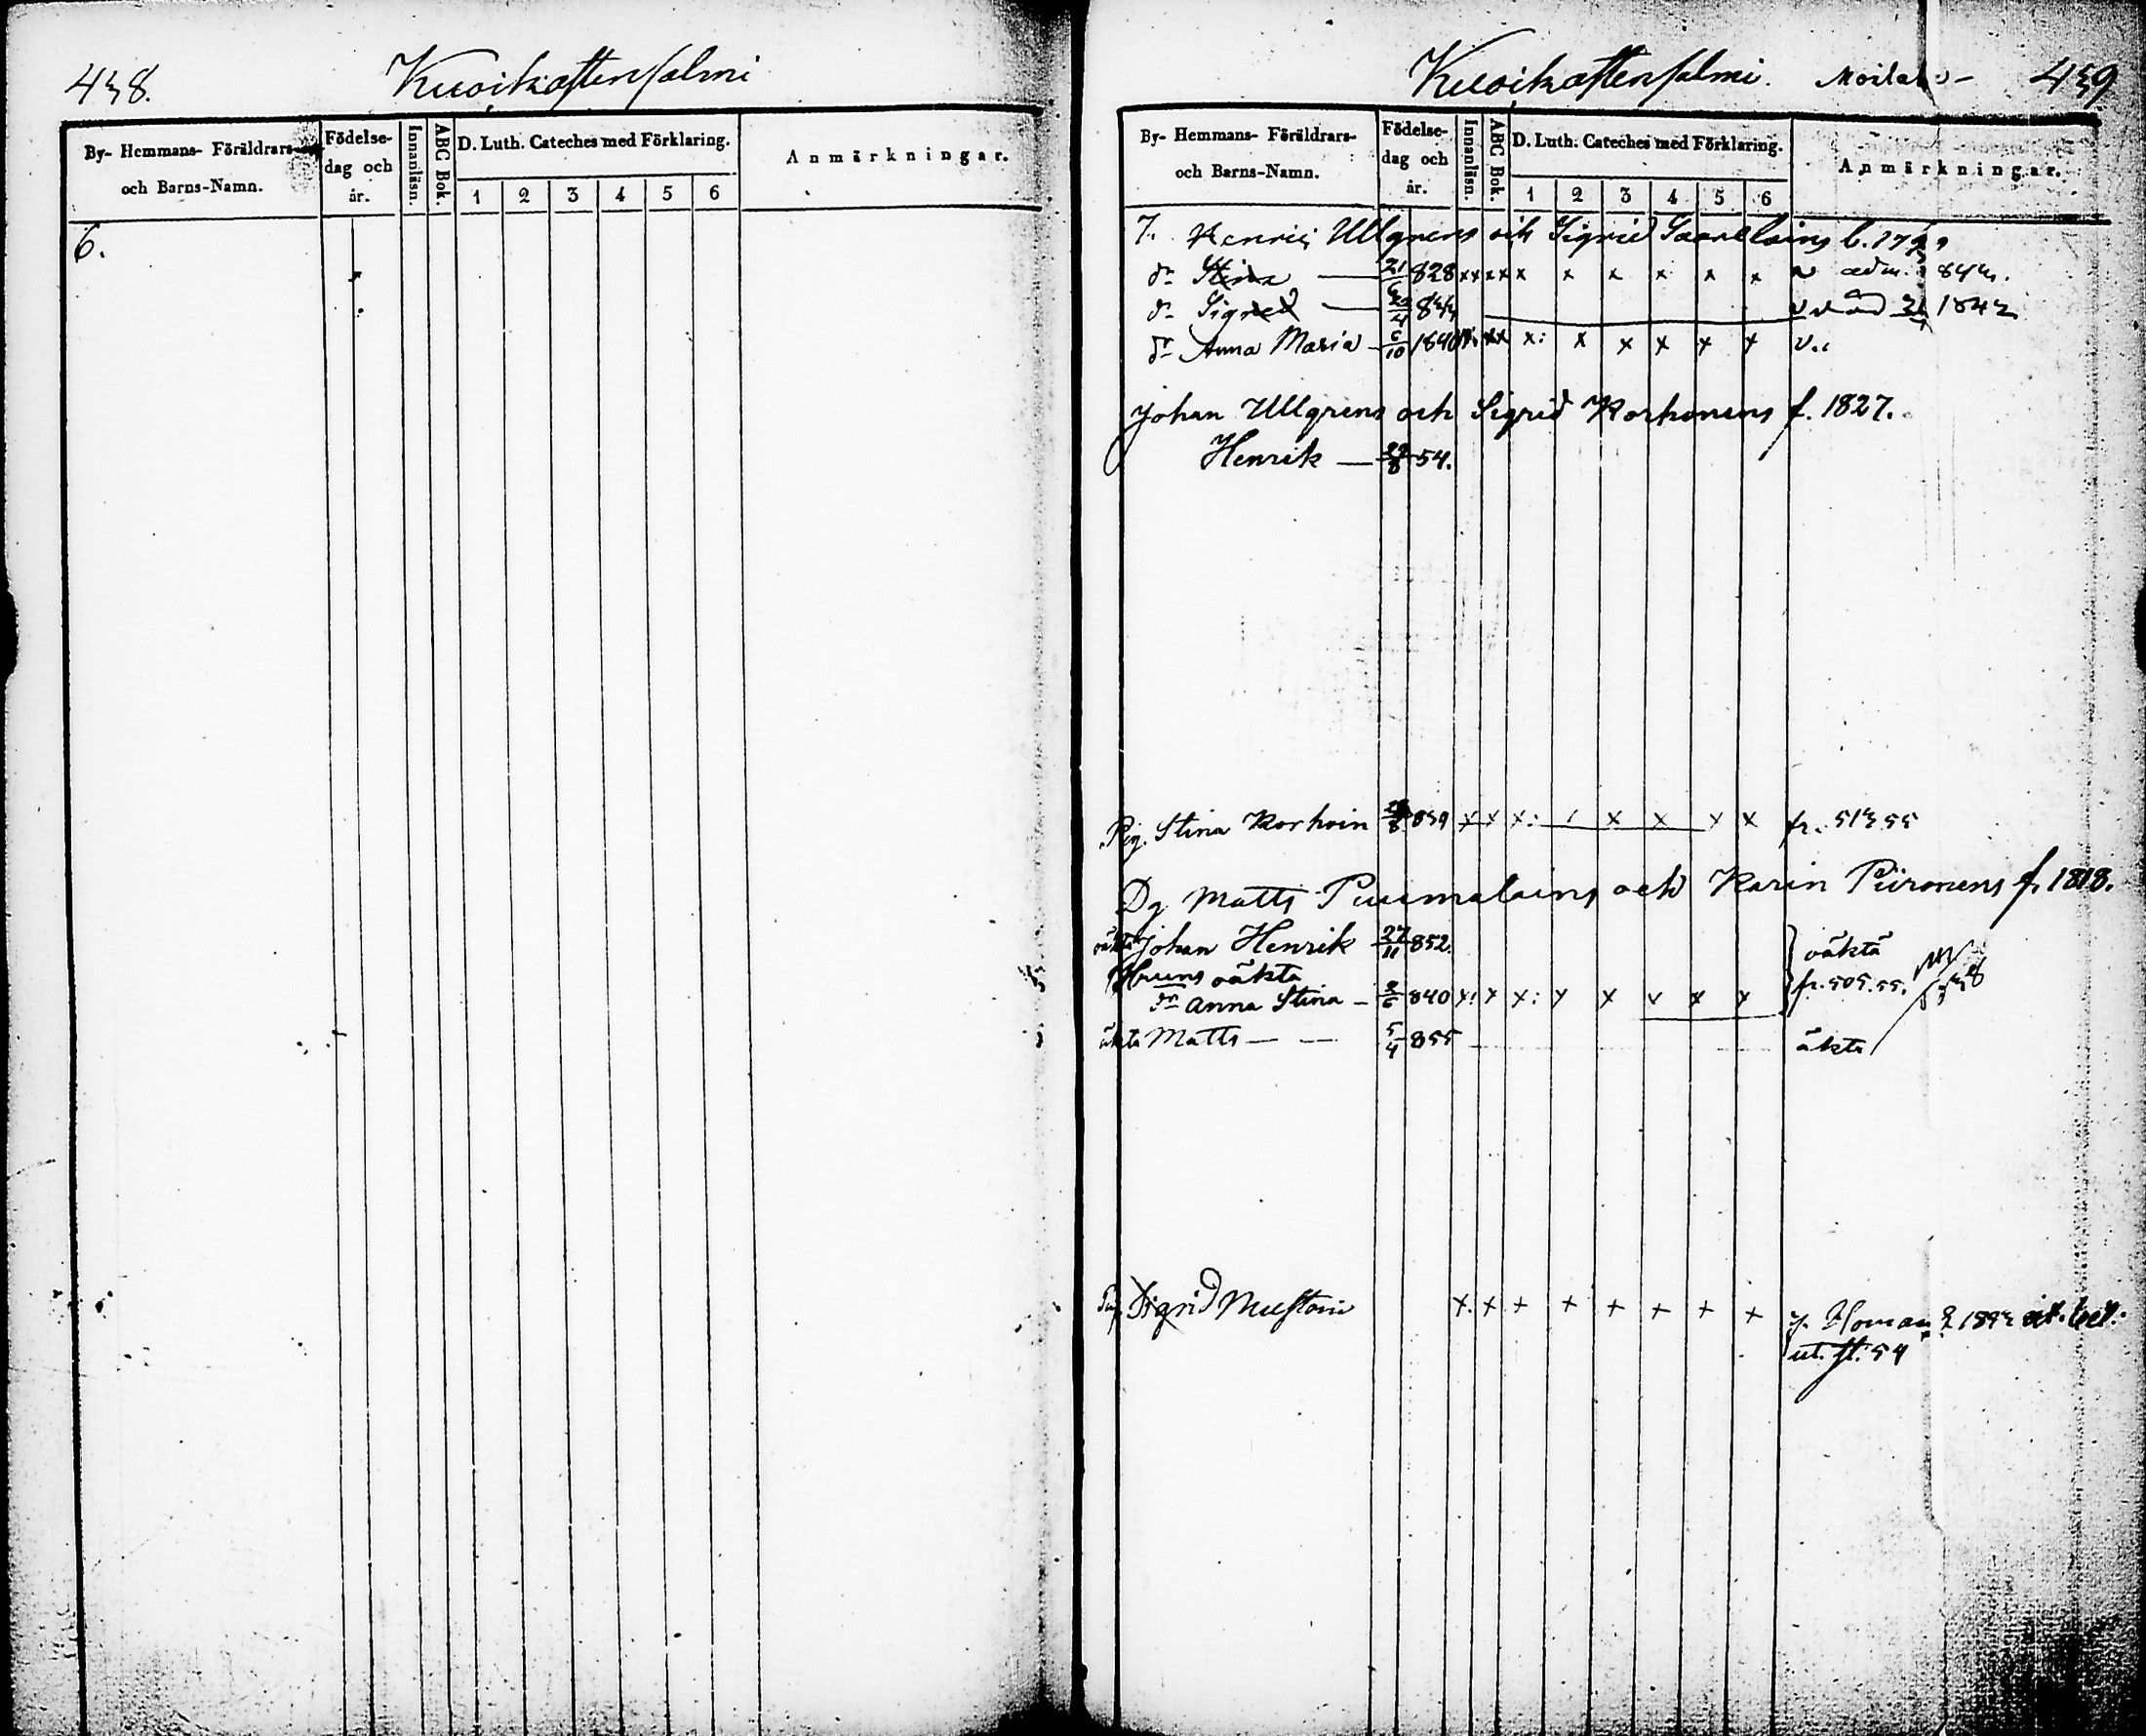 438. Kuoikattensalmi
By- Hemmans- Föräldrars-
och Barns-Namn.
Födelse-
dag och
år.
Innanläsn.
ABC Bok.
D. Luth. Cateches med Förklaring.
1 2 3 4 5 6
Anmärkningar.
6.
Kuoikattensalmi. 439
By- Hemmans- Föräldrars-
och Barns-Namn.
Födelse-
dag och
år.
Innanläsn.
ABC Bok.
D. Luth. Cateches med Förklaring.
1 2 3 4 5 6
Anmärkningar.
7. Henric Ullgrens och Sigrid
dr Stina — 21/6 828 x x x x x x x x x x adm.
dr Sigrid — 1842
dr Anna Maria — 6/10 1840 x x x: x x x x x v.
Johan Ullgrens och Sigrid Korhonens f. 1827.
Henrik — 29/8 54.
Pig. Stina Korhoin 839 x x x: x x x x fr. 513 55
Dg Matts Puumalains och Karin Piironens f. 1818.
oäkta Johan Henrik 27/11 852. oäkta
Huns oäkta fr. 505. 55.
dr Anna Stina — 2/6 840 x: x x: x x v x x
äkta Matts — — 5/4 855 äkta
Sigrid Mustoin x. x + + + + + x
ut. fl. 54